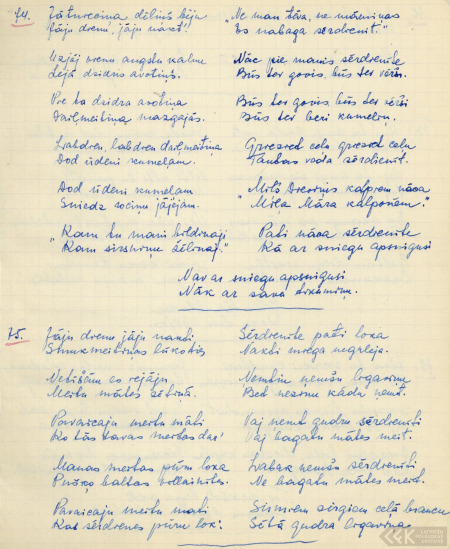 74. Jātureima dēliņš biju
Jāju dienu, jāju nakti.
Uzjāj vienu augstu kalnu
Lejā dzidrs avotiņš.
Pie tā dzidra avotiņa
Daiļmeitiņa mazgājās.
Labdien, labdien daiļmeitiņa
Dod ūdeni kumeļam.
Dod ūdeni kumeļam
Sniedz jājējam.
"Kam tu mani
Kam sirsniņu
"Ne man tēva, ne māmiņas
Es nabaga sērdienīte."
Nāc pie manis sērdienīte
Būs tev govis, būs tev vērši.
Būs tev govis, būs tev vērši
Būs tev bēri kumeliņi.
Griezied ceļu, griezied ceļu
Tautas veda sērdienīti.
Mīļš Dieviņis kalpiem nāca
"Mīļa Māra kalponēm."
Pati nāca sērdienīte
Kā ar sniegu apsnigusi
Nav ar sniegu apsnigusi
Nāk ar savu
75. Jāju dienu jāju nakti
Smukmeitiņas lūkoties
Netīšām es iejāju
Meitu mātes sētiņā.
Pavaicāju meitu māti
Ko tās tavas meitas dar'
Manas meitas pūru loka
Pušķo baltas villainītes.
Pavaicāju meitu māti
Kas sērdienes pūru lok'.
Sērdienīte pati loka
Nakti miega negulēja.
Nemtin ņemšu līgaviņu
Bet nezinu kādu ņemt.
Vaj ņemt gudru sērdienīti
Vaj bagātu mātes meit.
Labāk ņemšu sērdienīti
Ne bagātu mātes meit.
Simtiem zirgiem ceļā braucu
Sētā gudra līgaviņa.